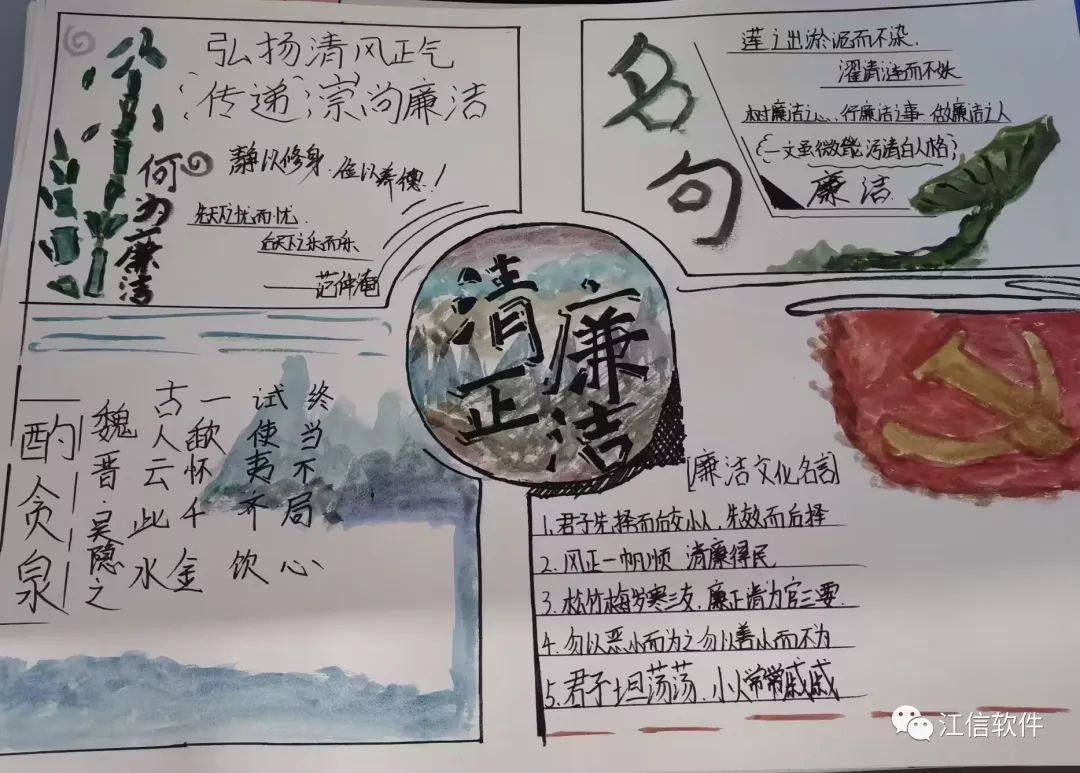 弘扬清风正气
传递 崇尚廉洁
何为廉洁
静以修身
先天下忧而忧
后天下之乐而乐
——范仲淹
名句
莲之出淤泥而不染
濯清涟而不妖
树廉洁之心,行廉洁之事 做廉洁之人
一文虽微能污清白人格
廉洁
清正
廉洁
酌贪泉
魏晋·吴隐之
古人云此水
一歃怀千金
试使夷齐饮
终当不局心
[廉洁文化名言]
1.君子先择而后交小人,先效而后择
2.风正一帆顺 清廉得民
3.松竹梅岁寒三友,廉正清为官三要.
4.勿以恶小而为之勿以善小而不为
5.君子坦荡荡,小人常常戚戚
江信软件